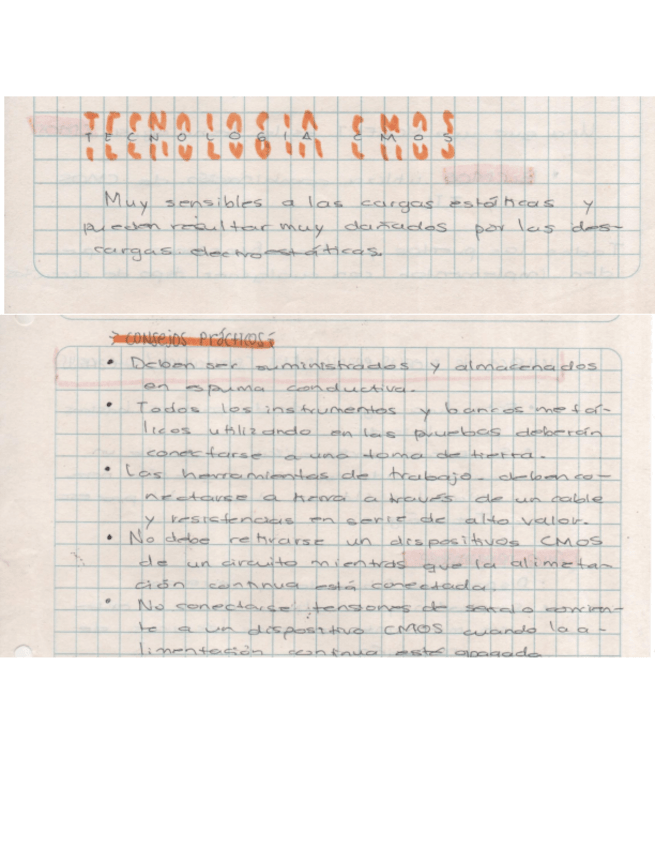 TECNOLOGIA CMOS
Muy sensibles a las cargas estáticas y
pueden resultar muy dañados por las des-
cargas electroestáticas.
→ consejos prácticos:
• Deben ser suministrados y almacenados
en espuma conductiva.
• Todos los instrumentos y bancos metá-
licos utilizando en las pruebas deberán
conectarse a una toma de tierra.
• Las herramientas de trabajo deben co-
nectarse a tierra a través de un cable
y resistencias en serie de alto valor.
• No debe retirarse un dispositivos CMOS
de un circuito mientras que la alimeta-
ción continua está conectada.
• No conectarse tensiones de señal o corrien-
te a un dispositivo CMOS cuando la a-
limentación continua esté apagada